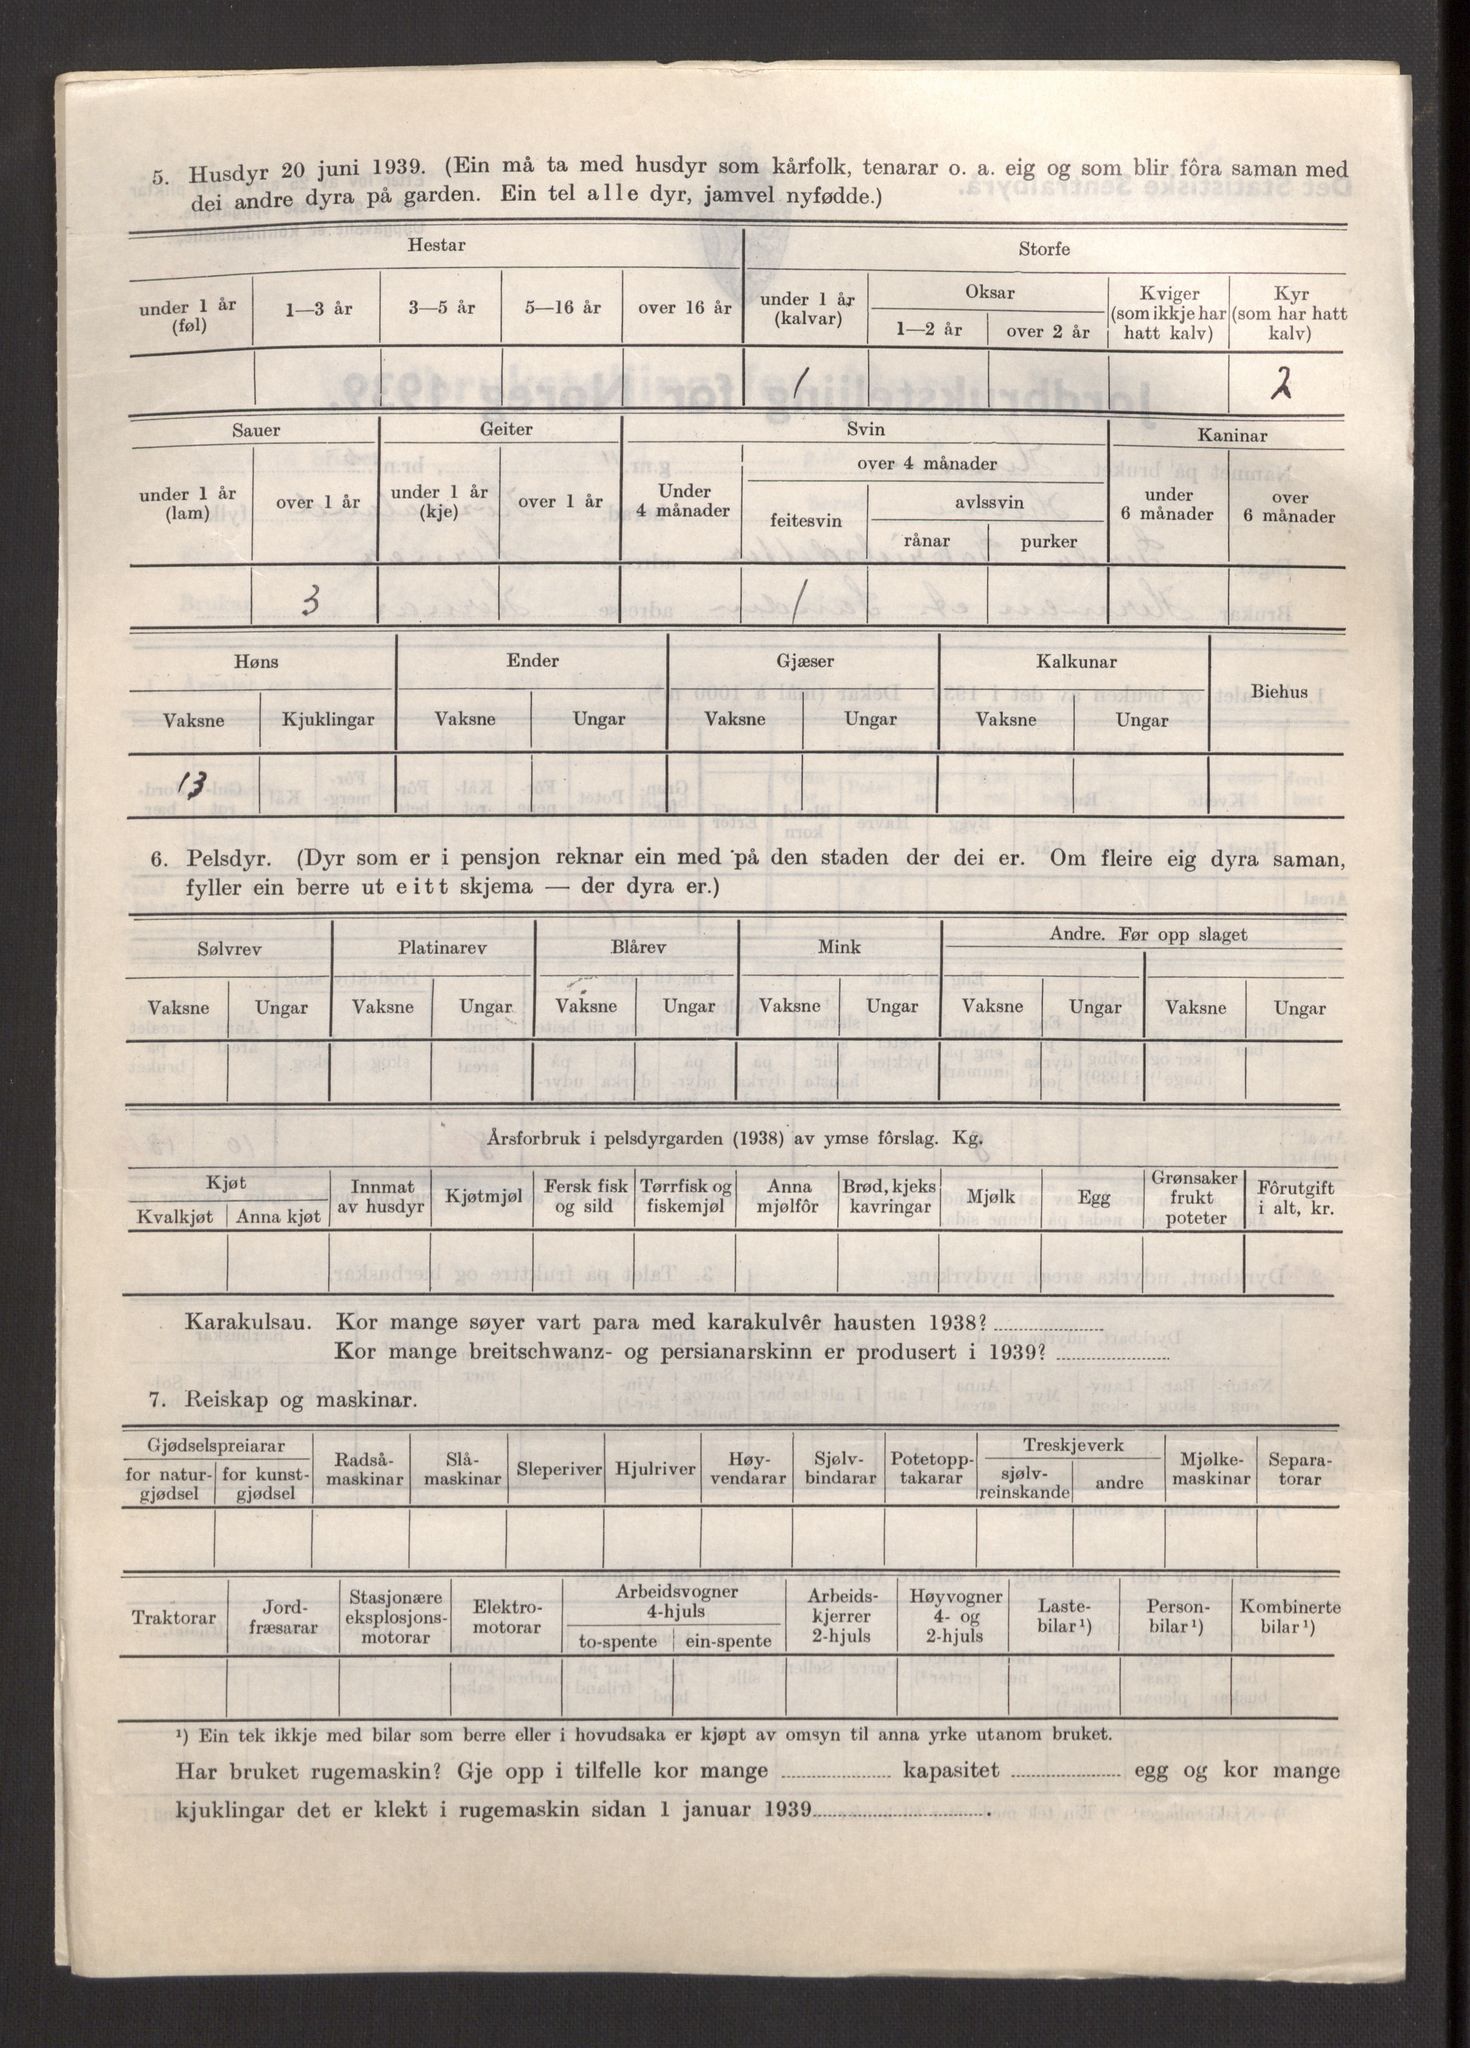 5. Husdyr 20 juni 1939. (Ein må ta med husdyr som kårfolk, tenarar o. a. eig og som blir fôra saman med
dei andre dyra på garden. Ein tel alle dyr, jamvel nyfødde.)
Hestar Storfe
under 1 år (føl) 1—3 år 3—5 år 5—16 år over 16 år under 1 år (kalvar) Oksar 1—2 år over 2 år Kviger (som ikkje har hatt kalv) Kyr (som har hatt kalv)
1 2
Sauer Geiter Svin Kaninar
under 1 år (lam) over 1 år under 1 år (kje) over 1 år Under 4 månader over 4 månader feitesvin avlssvin rånar purker under 6 månader over 6 månader
3 1
Høns Ender Gjæser Kalkunar Biehus
Vaksne Kjuklingar Vaksne Ungar Vaksne Ungar Vaksne Ungar
13
6. Pelsdyr. (Dyr som er i pensjon reknar ein med på den staden der dei er. Om fleire eig dyra saman,
fyller ein berre ut eitt skjema — der dyra er.)
Sølvrev Platinarev Blårev Mink Andre. Før opp slaget
Vaksne Ungar Vaksne Ungar Vaksne Ungar Vaksne Ungar Vaksne Ungar Vaksne Ungar
Årsforbruk i pelsdyrgarden (1938) av ymse fôrslag. Kg.
Kjøt Kvalkjøt Anna kjøt Innmat av husdyr Kjøtmjøl Fersk fisk og sild Tørrfisk og fiskemjøl Anna mjølfôr Brød, kjeks kavringar Mjølk Egg Grønsaker frukt poteter Fôrutgift i alt, kr.
Karakulsau. Kor mange søyer vart para med karakulvêr hausten 1938?
Kor mange breitschwanz- og persianarskinn er produsert i 1939?
7. Reiskap og maskinar.
Gjødselspreiarar for natur-gjødsel for kunst-gjødsel Radså-maskinar Slå-maskinar Sleperiver Hjulriver Høy-vendarar Sjølv-bindarar Potetopp-takarar Treskjeverk sjølv-reinskande andre Mjølke-maskinar Separa-torar
Traktorar Jord-fræsarar Stasjonære eksplosjons-motorar Elektro-motorar Arbeidsvogner 4-hjuls to-spente ein-spente Arbeids-kjerrer 2-hjuls Høyvogner 4- og 2-hjuls Laste-bilar¹) Person-bilar¹) Kombinerte bilar¹)
¹) Ein tek ikkje med bilar som berre eller i hovudsaka er kjøpt av omsyn til anna yrke utanom bruket.
Har bruket rugemaskin? Gje opp i tilfelle kor mange kapasitet egg og kor mange
kjuklingar det er klekt i rugemaskin sidan 1 januar 1939 .